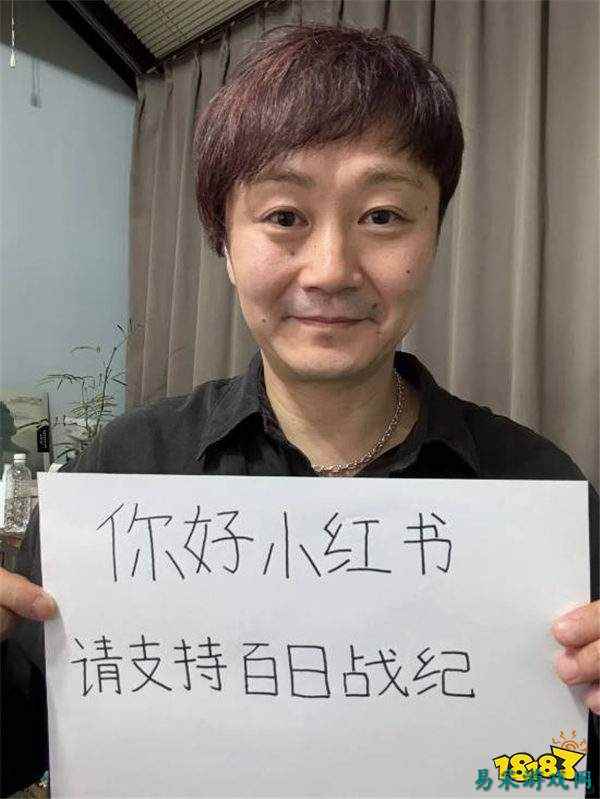 你好小红书
请支持百日战纪
18183
易采游戏网